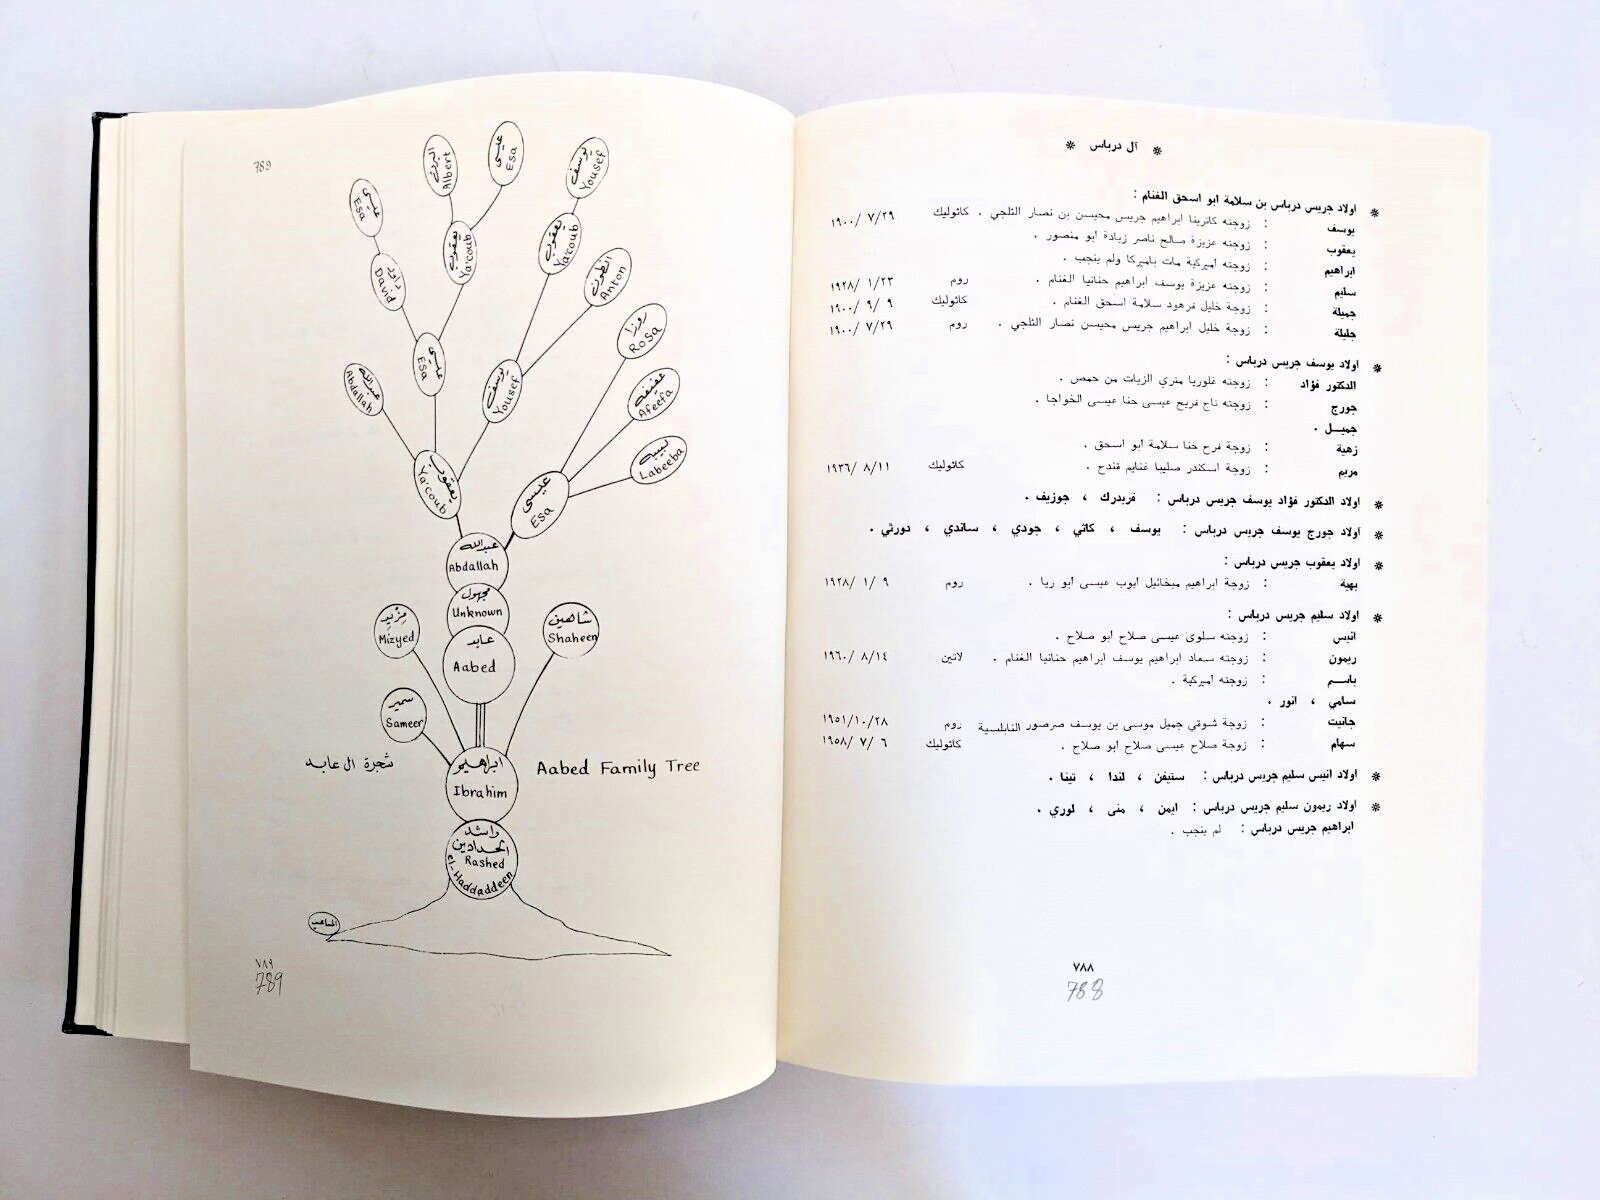 * آل درباس *
* اولاد جريس درباس بن سلامة ابو اسحق الغنام :
يوسف : زوجته كاترينا ابراهيم جريس محيسن بن نصار الثلجي . كاثوليك ١٩٠٠/ ٧/٢٩
يعقوب : زوجته عزيزة صالح ناصر زيادة ابو منصور .
ابراهيم : زوجته اميركية مات باميركا ولم ينجب .
سليم : زوجته عزيزة يوسف ابراهيم حنانيا الغنام . روم ١٩٢٨/ ١/٢٣
جميلة : زوجة خليل فرهود سلامة اسحق الغنام . كاثوليك ١٩٠٠/ ٩/ ٩
جليلة : زوجة خليل ابراهيم جريس محيسن نصار الثلجي . روم ١٩٠٠/ ٧/٢٩
* اولاد يوسف جريس درباس :
الدكتور فؤاد : زوجته غلوريا متري الزيات من حمص .
جورج : زوجته تاج فريح عيسى حنا عيسى الخواجا .
جميــل .
زهية : زوجة فرح حنا سلامة ابو اسحق .
مريم : زوجة اسكندر صليبا غنايم قندح . كاثوليك ١٩٣٦/ ٨/١١
* اولاد الدكتور فؤاد يوسف جريس درباس : فريدرك ، جوزيف .
* اولاد جورج يوسف جريس درباس : يوسف ، كاثي ، جودي ، ساندي ، دورثي .
* اولاد يعقوب جريس درباس :
بهية : زوجة ابراهيم ميخائيل ايوب عيسى ابو ريا . روم ١٩٢٨/ ١/ ٩
* اولاد سليم جريس درباس :
انيس : زوجته سلوى عيسى صلاح ابو صلاح .
ريمون : زوجته سعاد ابراهيم يوسف ابراهيم حنانيا الغنام . لاتين ١٩٦٠/ ٨/١٤
باســم : زوجته اميركية .
سامي ، انور .
جانيت : زوجة شوقي جميل موسى بن يوسف صرصور النابلسية روم ١٩٥١/١٠/٢٨
سهام : زوجة صلاح عيسى صلاح ابو صلاح . كاثوليك ١٩٥٨/ ٧/ ٦
* اولاد انيس سليم جريس درباس : ستيفن ، لندا ، تينا .
* اولاد ريمون سليم جريس درباس : ايمن ، منى ، لوري .
ابراهيم جريس درباس : لم ينجب .
٧٨٨
788
789
عيسى
Esa
البرت
Albert
عيسى
Esa
يوسف
Yousef
داود
David
يعقوب
Ya'coub
يعقوب
Ya'coub
انطون
Anton
عبدالله
Abdallah
عيسى
Esa
يوسف
Yousef
روزا
Rosa
عفيفه
Afeefa
لبيبه
Labeeba
يعقوب
Ya'coub
عيسى
Esa
عبدالله
Abdallah
مجهول
Unknown
مزيد
Mizyed
عابد
Aabed
شاهين
Shaheen
سمير
Sameer
شجرة ال عابد
ابراهيم
Ibrahim
Aabed Family Tree
راشد
الحدادين
Rashed
el-Haddaddeen
٧٨٩
789